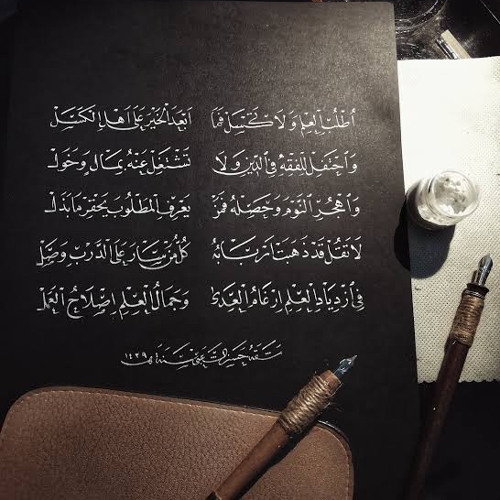 اُطْلُبِ العِلْمَ وَلَا تَكْسَلْ فَمَا اَبْعَدَ الْخَيْرَ عَلَى اَهْلِ الكَسَلْ
وَاحْتَفِلْ لِلْفِقْهِ فِي الدِّينِ وَلَا تَشْتَغِلْ عَنْهُ بِمَالٍ وَخَوَلْ
وَاهْجُرِ النَّوْمَ وَحَصِّلْهُ فَمَنْ يَعْرِفِ المَطْلُوبَ يَحْقِرْ مَا بَذَلْ
لَا تَقُلْ قَدْ ذَهَبَتْ اَرْبَابُهُ كُلُّ مَنْ سَارَ عَلَى الدَّرْبِ وَصَلْ
فِي ازْدِيَادِ العِلْمِ اِرْغَامُ العِدَى وَجَمَالُ العِلْمِ اِصْلَاحُ العَمَلْ
سنة ١٤٣٩